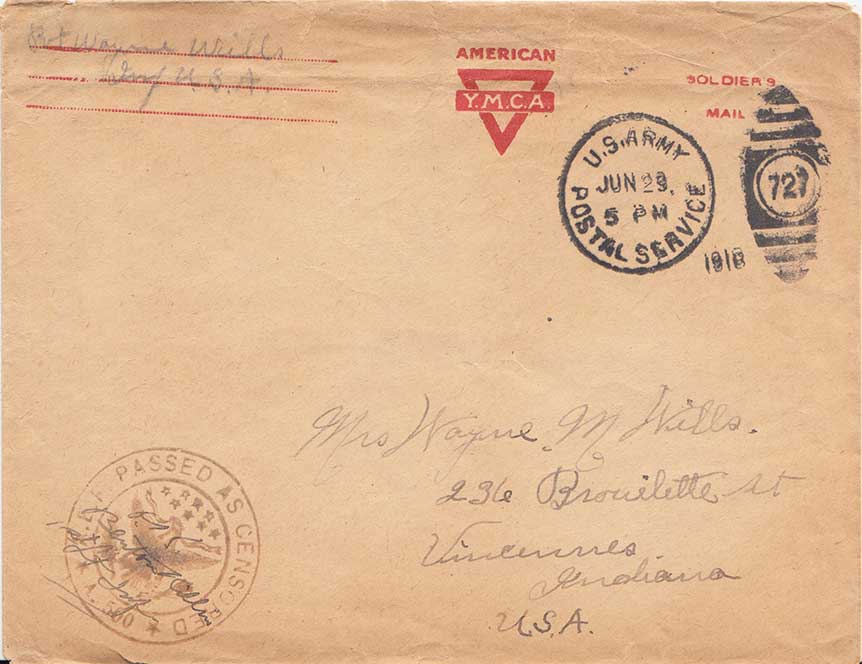 Wayne Wills
Inf U.S.A.
AMERICAN
Y.M.C.A.
SOLDIER'S
MAIL
U.S. ARMY
JUN 29.
5 PM
POSTAL SERVICE
1918
727
Mrs Wayne M Wills.
236 Brouilette St
Vincennes
Indiana
U.S.A.
PASSED AS CENSORED